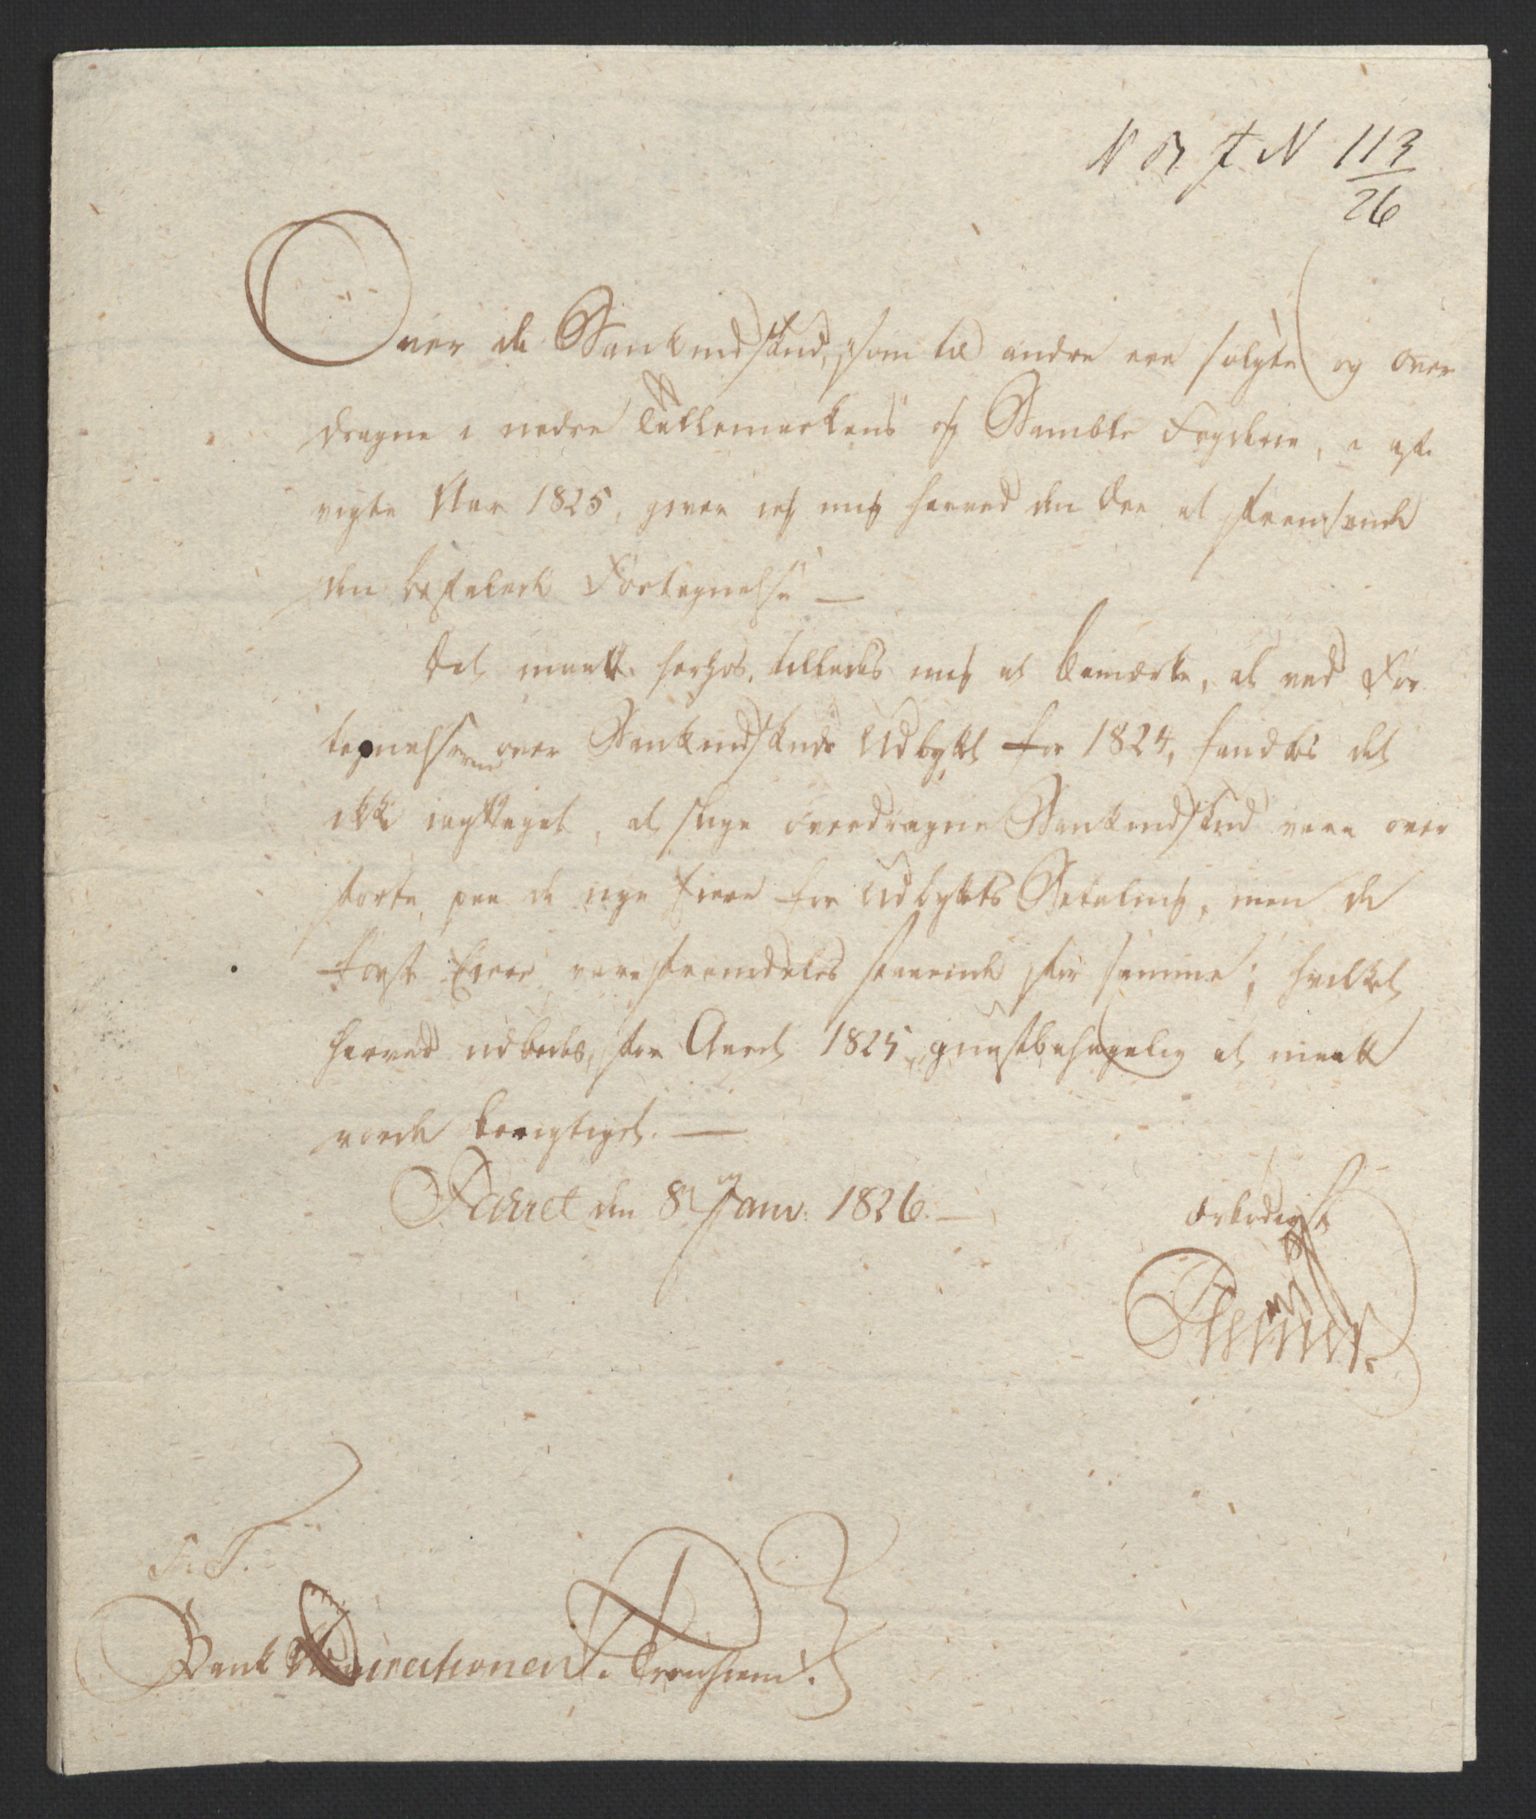 N B J N 113
26
Over de Bankindskud, som til andre ere solgte og over
dragne i nedre Tellemarkens og Bamble Fogderie, i af
vigte Aar 1825, giver jeg mig herved den Ære at fremsende
den befalede Fortegnelse —
Det maatte herhos tillades mig at bemærke, at ved For
tegnelserne over Bankindskuds Udbytte for 1824, fandtes det
ikke iagttaget, at slige overdragne Bankindskud vare over
førte paa de nye Eiere for Udbyttets Betaling, men de
første Eiere vare fremdeles staaende for samme; hvilket
herved udbedes, for Aaret 1825, gunstbehagelig at maatte
vorde berigtiget. —
den 8de Janv. 1826. —
ærbødigst
S. T.
Bank Directionen i Tronhiem.